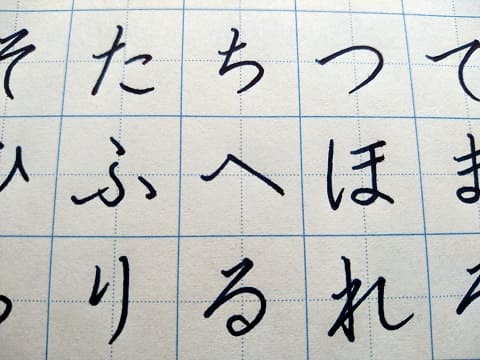 そたちつて
ひふへほま
らりるれろ